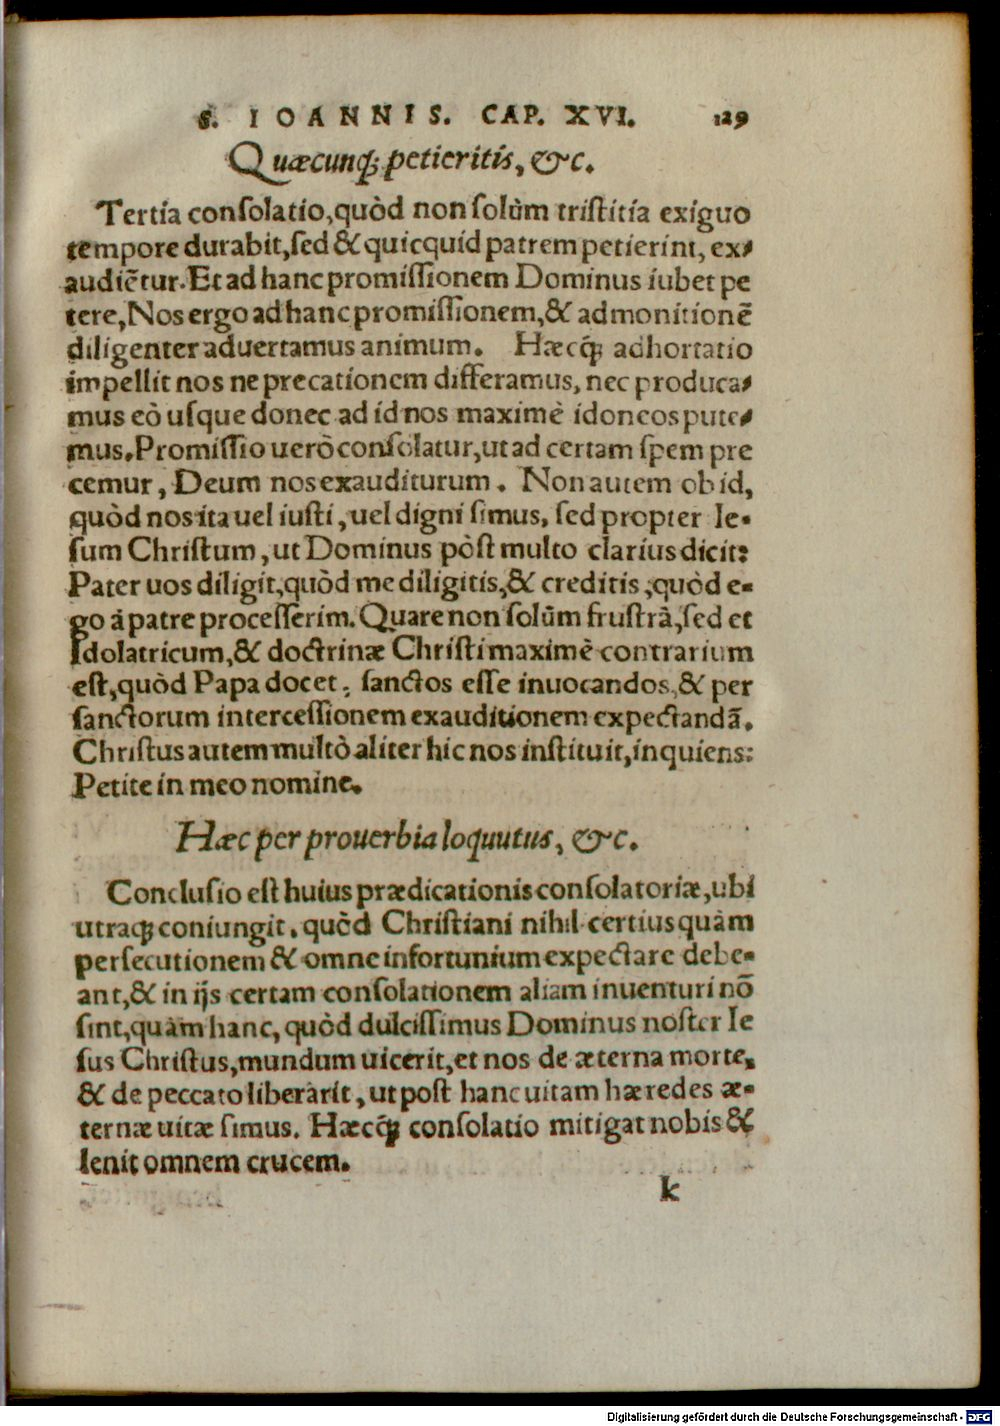 S. IOANNIS. CAP. XVI. 129
Quæcunq; petieritis, &c.
Tertia conſolatio, quòd non ſolùm triſtitia exiguo
tempore durabit, ſed & quicquid patrem petierint, ex-
audiẽtur. Et ad hanc promiſſionem Dominus iubet pe
tere, Nos ergo ad hanc promiſſionem, & admonitionẽ
diligenter aduertamus animum. Hæcq́; adhortatio
impellit nos ne precationem differamus, nec produca-
mus eò uſque donec ad id nos maximè idoneos pute-
mus. Promiſſio uerò conſolatur, ut ad certam ſpem pre
cemur, Deum nos exauditurum. Non autem ob id,
quòd nos ita uel iuſti, uel digni ſimus, ſed propter Ie-
ſum Chriſtum, ut Dominus pòſt multo clarius dicit:
Pater uos diligit, quòd me diligitis, & creditis, quòd e-
go à patre proceſſerim. Quare non ſolũm fruſtrà, ſed et
Idolatricum, & doctrinæ Chriſti maximè contrarium
eſt, quòd Papa docet: ſanctos eſſe inuocandos, & per
ſanctorum interceſſionem exauditionem expectandã.
Chriſtus autem multò aliter hic nos inſtituit, inquiens:
Petite in meo nomine.
Hæc per prouerbia loquutus, &c.
Concluſio eſt huius prædicationis conſolatoriæ, ubi
utraq; coniungit, quòd Chriſtiani nihil certius quàm
perſecutionem & omne infortunium expectare debe-
ant, & in ijs certam conſolationem aliam inuenturi nõ
ſint, quàm hanc, quòd dulciſſimus Dominus noſter Ie
ſus Chriſtus, mundum uicerit, et nos de æterna morte,
& de peccato liberârit, ut poſt hanc uitam hæredes æ-
ternæ uitæ ſimus. Hæcq́; conſolatio mitigat nobis &
lenit omnem crucem.
k
Digitalisierung gefördert durch die Deutsche Forschungsgemeinschaft - DFG